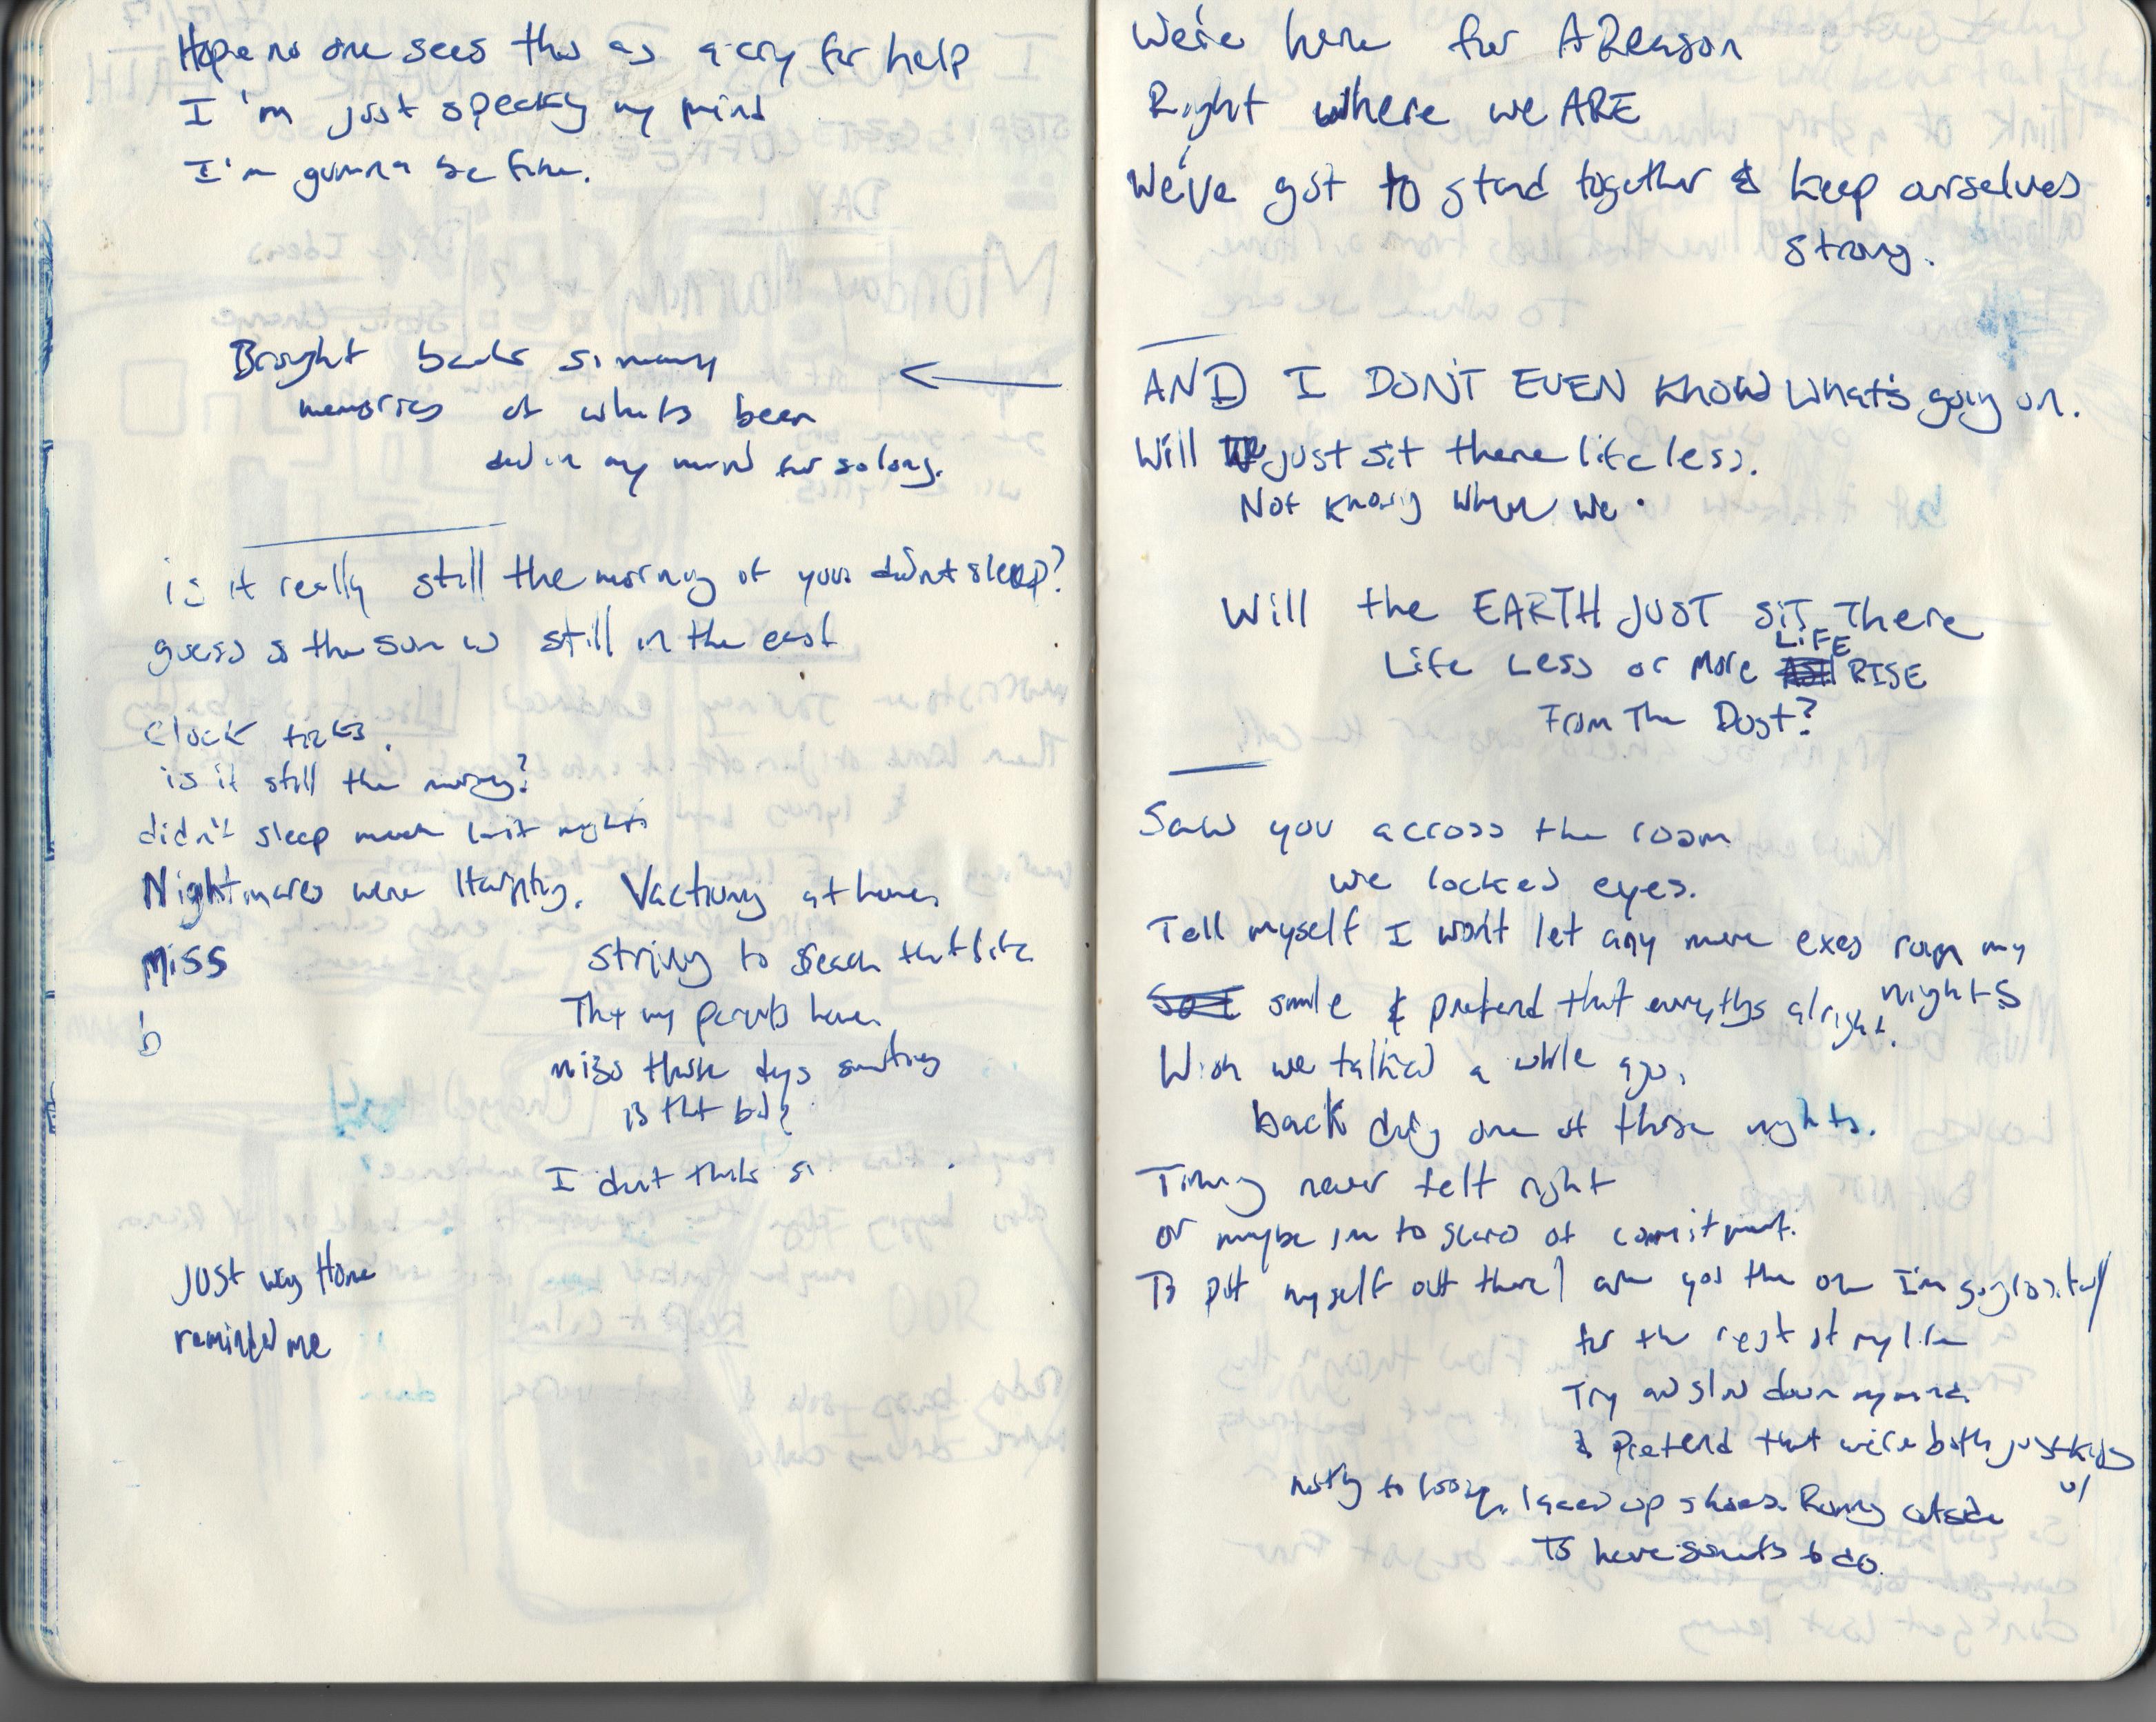 Hope no one sees this as a cry for help
I'm just speaking my mind
I'm gunna be fine.
Brought back so many
memories of whats been
in my mind for so long.
is it really still the morning if you didn't sleep?
guess so the sun is still in the east
Clock ticks.
is it still the morning?
didn't sleep much last night
Nightmares were Haunting. Vactiong at home
Miss
striving to reach that life
That my parents have.
miss those days smiling
is that bad?
I dont think so
Just way Home
reminded me
We're here for A Reason
Right where we ARE
We've got to stand together & keep ourselves
strong.
AND I DON'T EVEN KNOW what's going on.
Will we just sit there lifeless.
Not knowing when we
Will the EARTH JUST SIT There
Life Less or More LIFE RISE
From The Dust?
Saw you across the room
we locked eyes.
Tell myself I won't let any more exes ruin my
nights
smile & pretend that everythings alright.
Wish we talked a while ago,
back during one of those nights.
Timing never felt right
or maybe im to scared of commitment.
To put myself out there are you the one I'm
for the rest of my life
Try and slow down my mind
& Pretend that we're both just kids
w/
nothing to loose, laced up shoes. Running outside
To have to do.